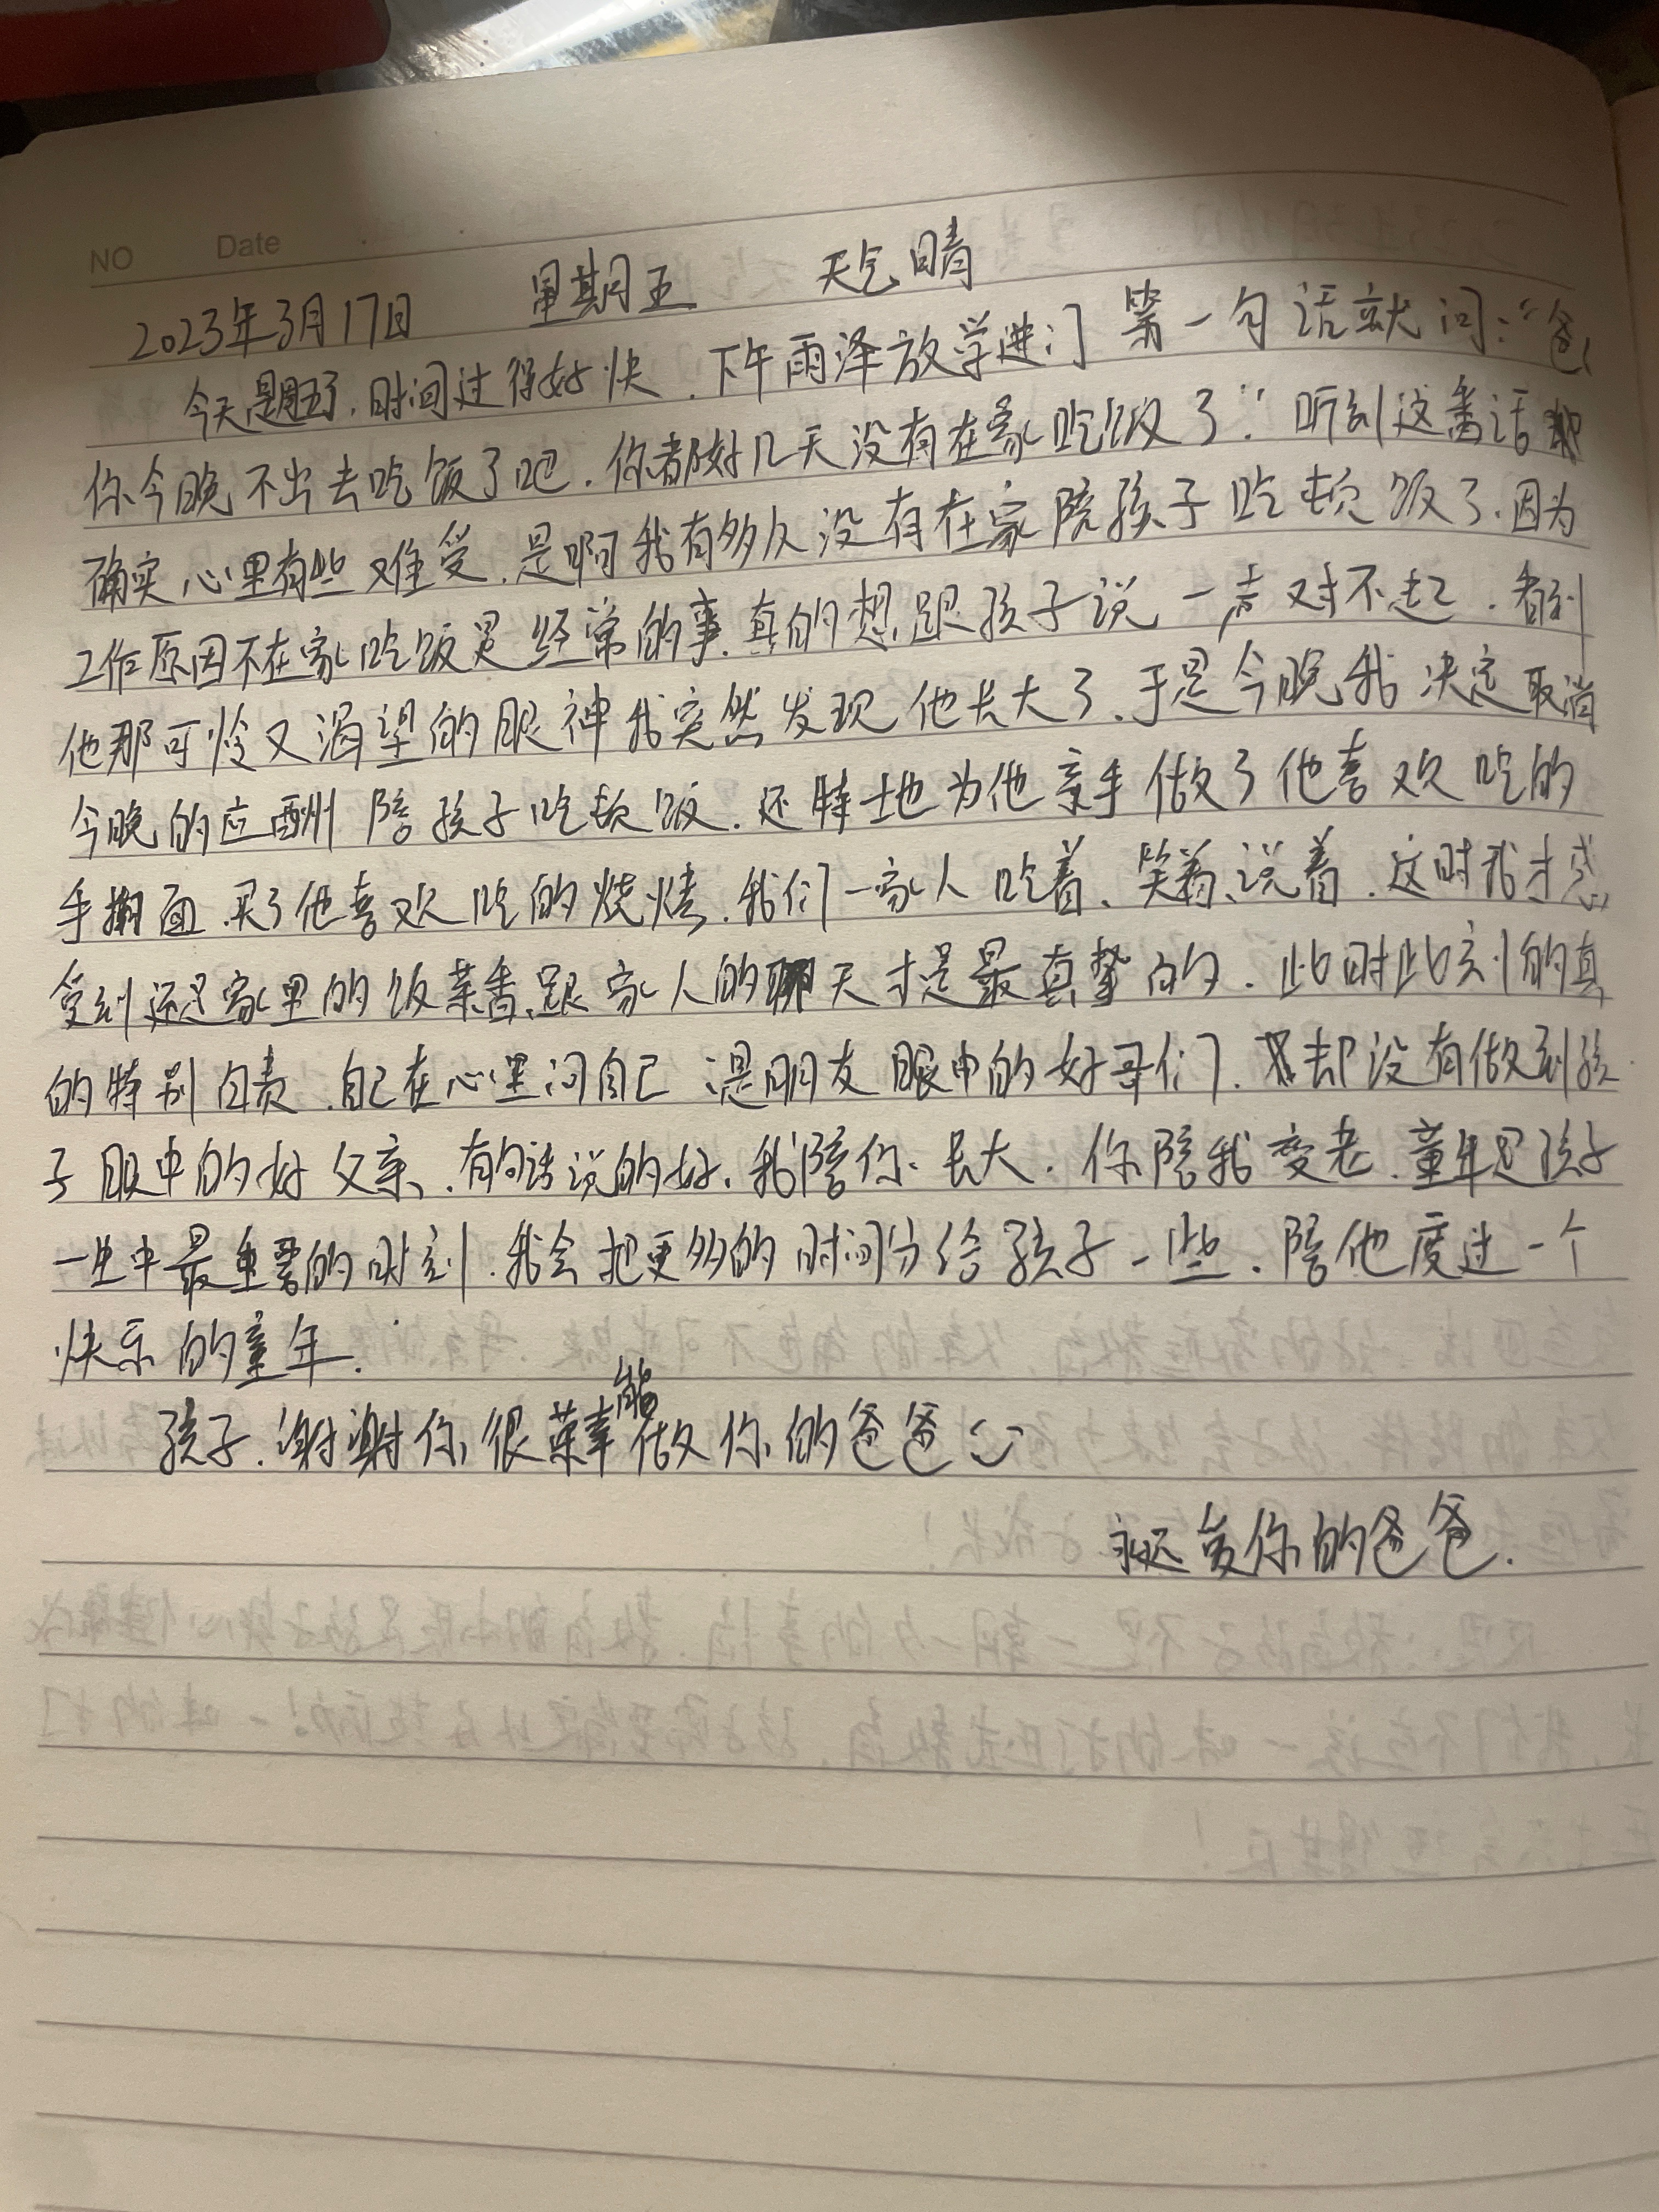 NO Date
2023年3月17日 星期五 天气晴
今天星期五了,时间过得好快.下午雨泽放学进门第一句话就问:“爸
你今晚不出去吃饭了吧.你都好几天没有在家吃饭了.”听到这番话
确实心里有些难受.是啊我有多久没有在家陪孩子吃顿饭了.因为
工作原因不在家吃饭是经常的事.真的想跟孩子说一声对不起.看到
他那可怜又渴望的眼神我突然发现他长大了.于是今晚我决定取消
今晚的应酬陪孩子吃顿饭.还特地为他亲手做了他喜欢吃的
手擀面.买了他喜欢吃的烧烤.我们一家人吃着、笑着、说着.这时我才感
受到还是家里的饭菜香.跟家人的聊天才是最真挚的.此时此刻的真
的特别自责.自己在心里问自己 是朋友眼中的好哥们.却没有做到孩
子眼中的好父亲.有句话说的好.我陪你长大.你陪我变老.童年是孩子
一生中最重要的时刻.我会把更多的时间分给孩子一些.陪他度过一个
快乐的童年.
孩子.谢谢你很荣幸能做你的爸爸
永远爱你的爸爸.